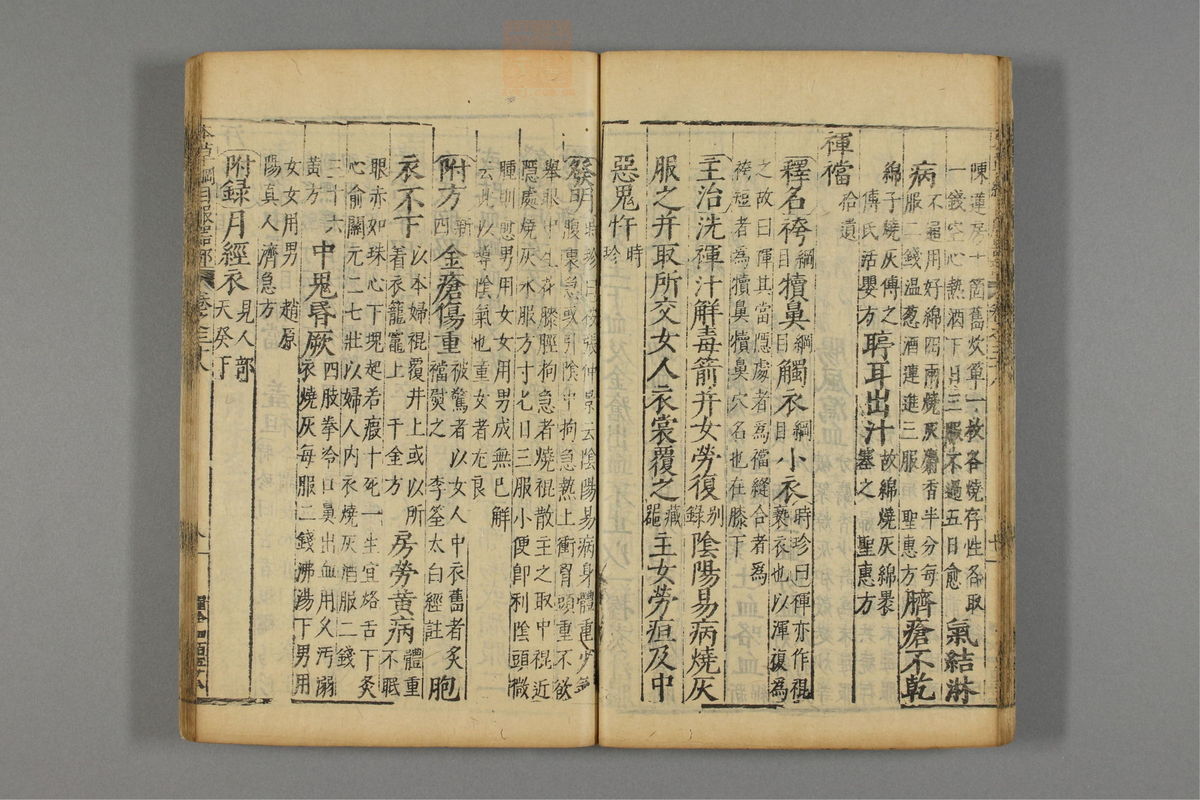 陳蓮房十箇舊炊單一枚各燒存性各取一錢空心熱酒下日三服不過五日愈氣結淋
病不通用好綿四兩燒灰麝香半分每服二錢温葱酒連進三服聖惠方臍瘡不乾
綿子燒灰傅之傅氏活嬰方聤耳出汁故綿燒灰綿褁塞之聖惠方
褌襠拾遺
釋名袴綱目犢鼻綱目觸衣綱目小衣時珍曰褌亦作裩褻衣也以渾復為
之故曰褌其當隱處者為襠縫合者為袴短者為犢鼻犢鼻穴名也在膝下
主治洗褌汁解毒箭并女勞復別錄陰陽易病燒灰
服之并取所交女人衣裳覆之藏器主女勞疸及中
惡鬼忤時珍
發明時珍曰按張仲景云陰陽易病身體重少氣腹裏急或引陰中拘急熱上衝胷頭重不欲
舉眼中生花膝脛拘急者燒裩散主之取中裩近隱處燒灰水服方寸匕日三服小便即利陰頭微
腫則愈男用女女用男成無已解云此以導陰氣也童女者尤良
附方新四金瘡傷重被驚者以女人中衣舊者炙襠熨之李筌太白經註胞
衣不下以本婦裩覆井上或以所着衣籠竈上千金方房勞黃病體重不眠
眼赤如珠心下塊起若瘕十死一生宜烙舌下灸心俞關元二七壯以婦人內衣燒灰酒服二錢
三十六黃方中鬼昏厥四肢拳冷口鼻出血用久污溺衣燒灰每服二錢沸湯下男用
女女用男趙原陽真人濟急方
附録月經衣見人部天癸下